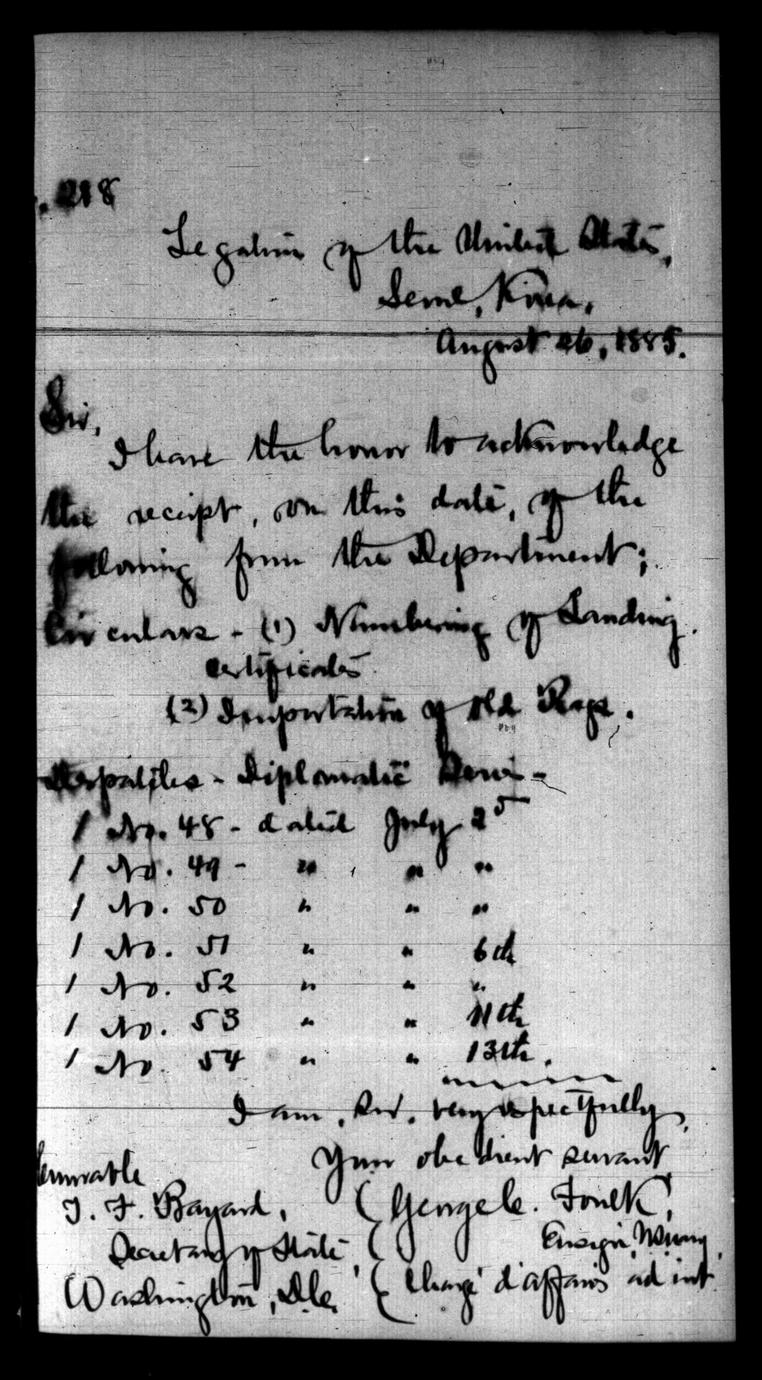 . 218
Legation of the United States,
Seoul, Korea.
August 26, 1885.
Sir,
I have the honor to acknowledge
the receipt, on this date, of the
following from the Department;
Circulars - (1) Numbering of Landing
certificates
(2) Importation of Old Rags.
Despatches - Diplomatic Series -
1 No. 48 - dated July 2
1 No. 49 - " " "
1 No. 50 " " "
1 No. 51 " " 6th
1 No. 52 " " "
1 No. 53 " " 11th
1 No. 54 " " 13th.
I am, Sir, very respectfully,
Your obedient servant
Honorable
T. F. Bayard,
Secretary of State,
Washington, D.C.
George C. Foulk,
Ensign, U.S. Navy,
Chargé d'affaires ad int.